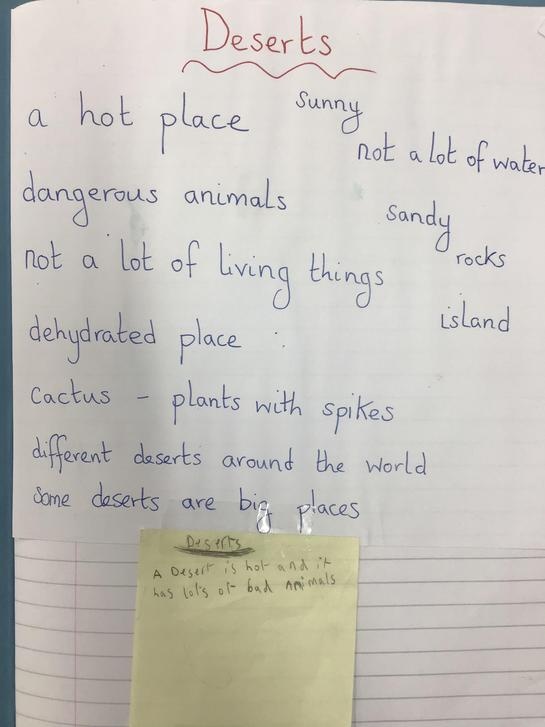 Deserts
a hot place
sunny
not a lot of water
dangerous animals
sandy
not a lot of living things
rocks
island
dehydrated place
cactus - plants with spikes
different deserts around the world
Some deserts are big places
Deserts
A Desert is hot and it
has lots of bad Animals